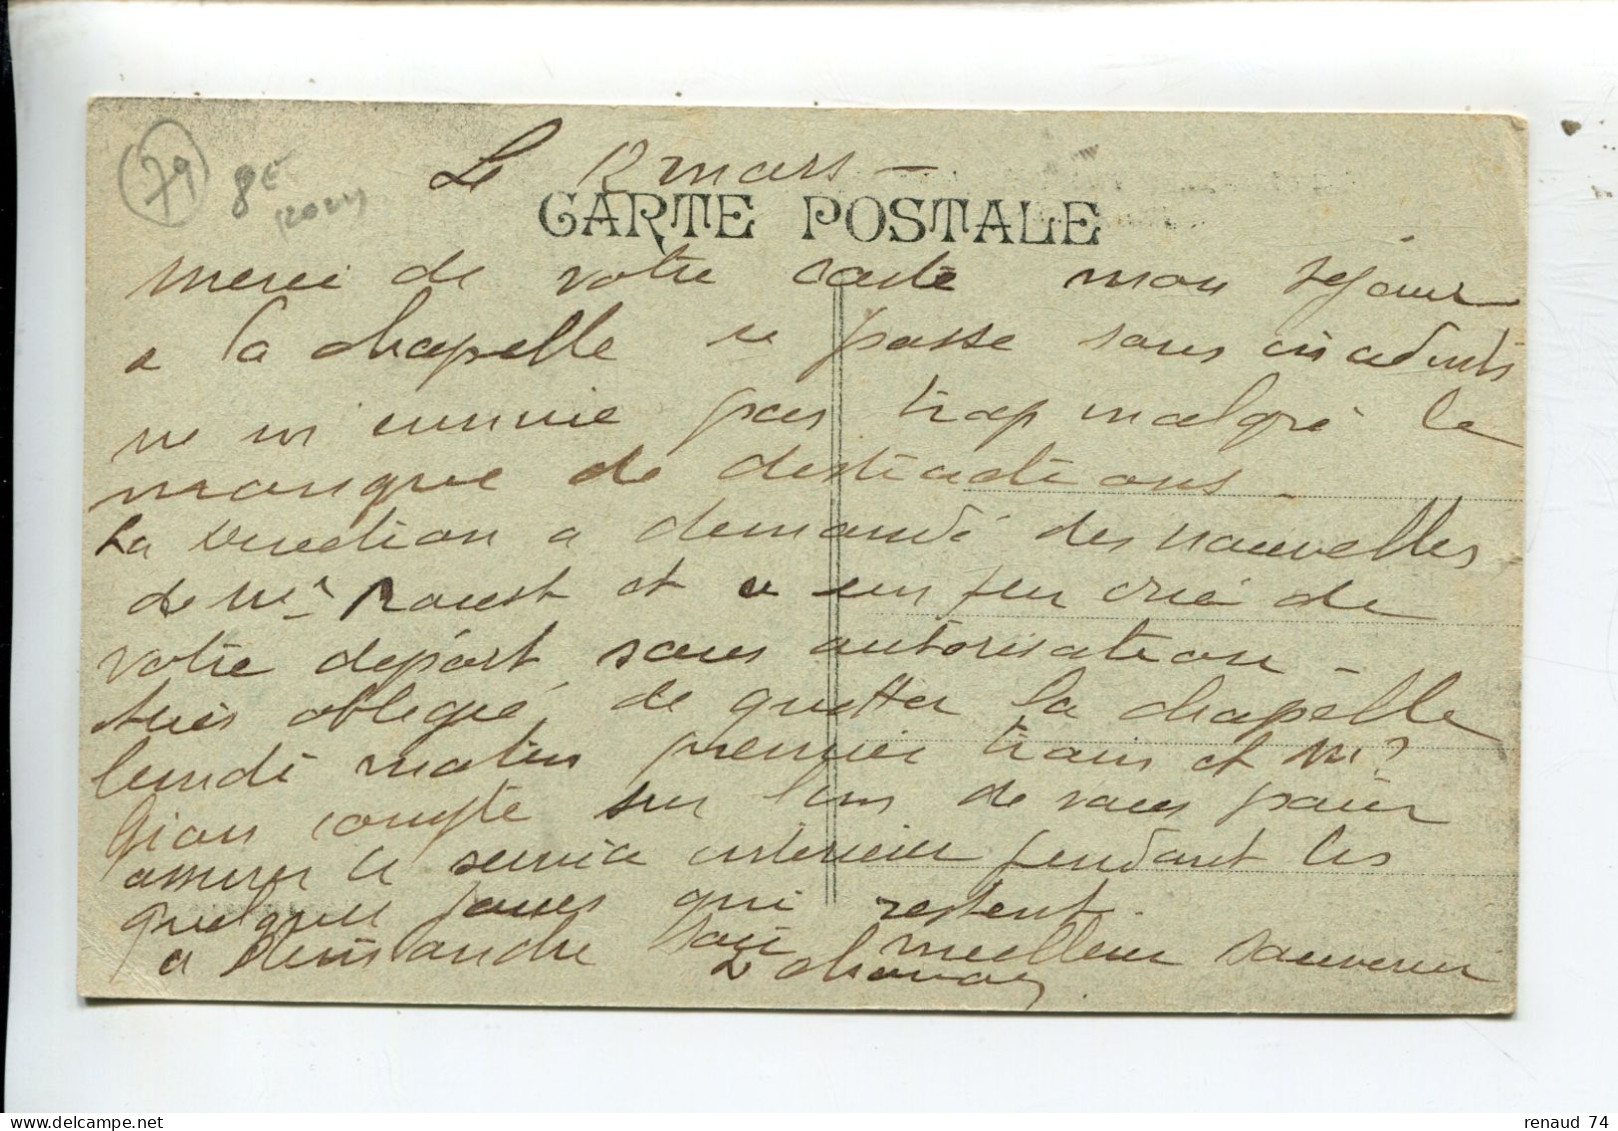 79
8E
Le 12 mars –
CARTE POSTALE
Merci de votre carte mon séjour
a la chapelle se passe sans incidents
ne m'ennuie pas trop malgré le
manque de distractions –
La Direction a demandé des nouvelles
de Mr Rouest et a un peu crié de
votre départ sans autorisation –
suis obligé de quitter la chapelle
lundi matin premier train et Mr
Gion compte sur l'un de vous pour
assurer le service intérieur pendant les
quelques jours qui restent.
a meilleur souvenir
renaud 74